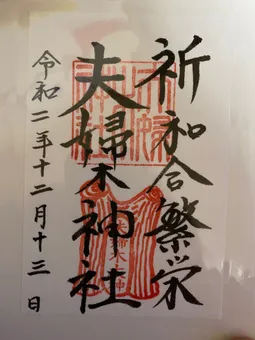 祈和合繁栄
夫婦木神社
令和二年十二月十三日